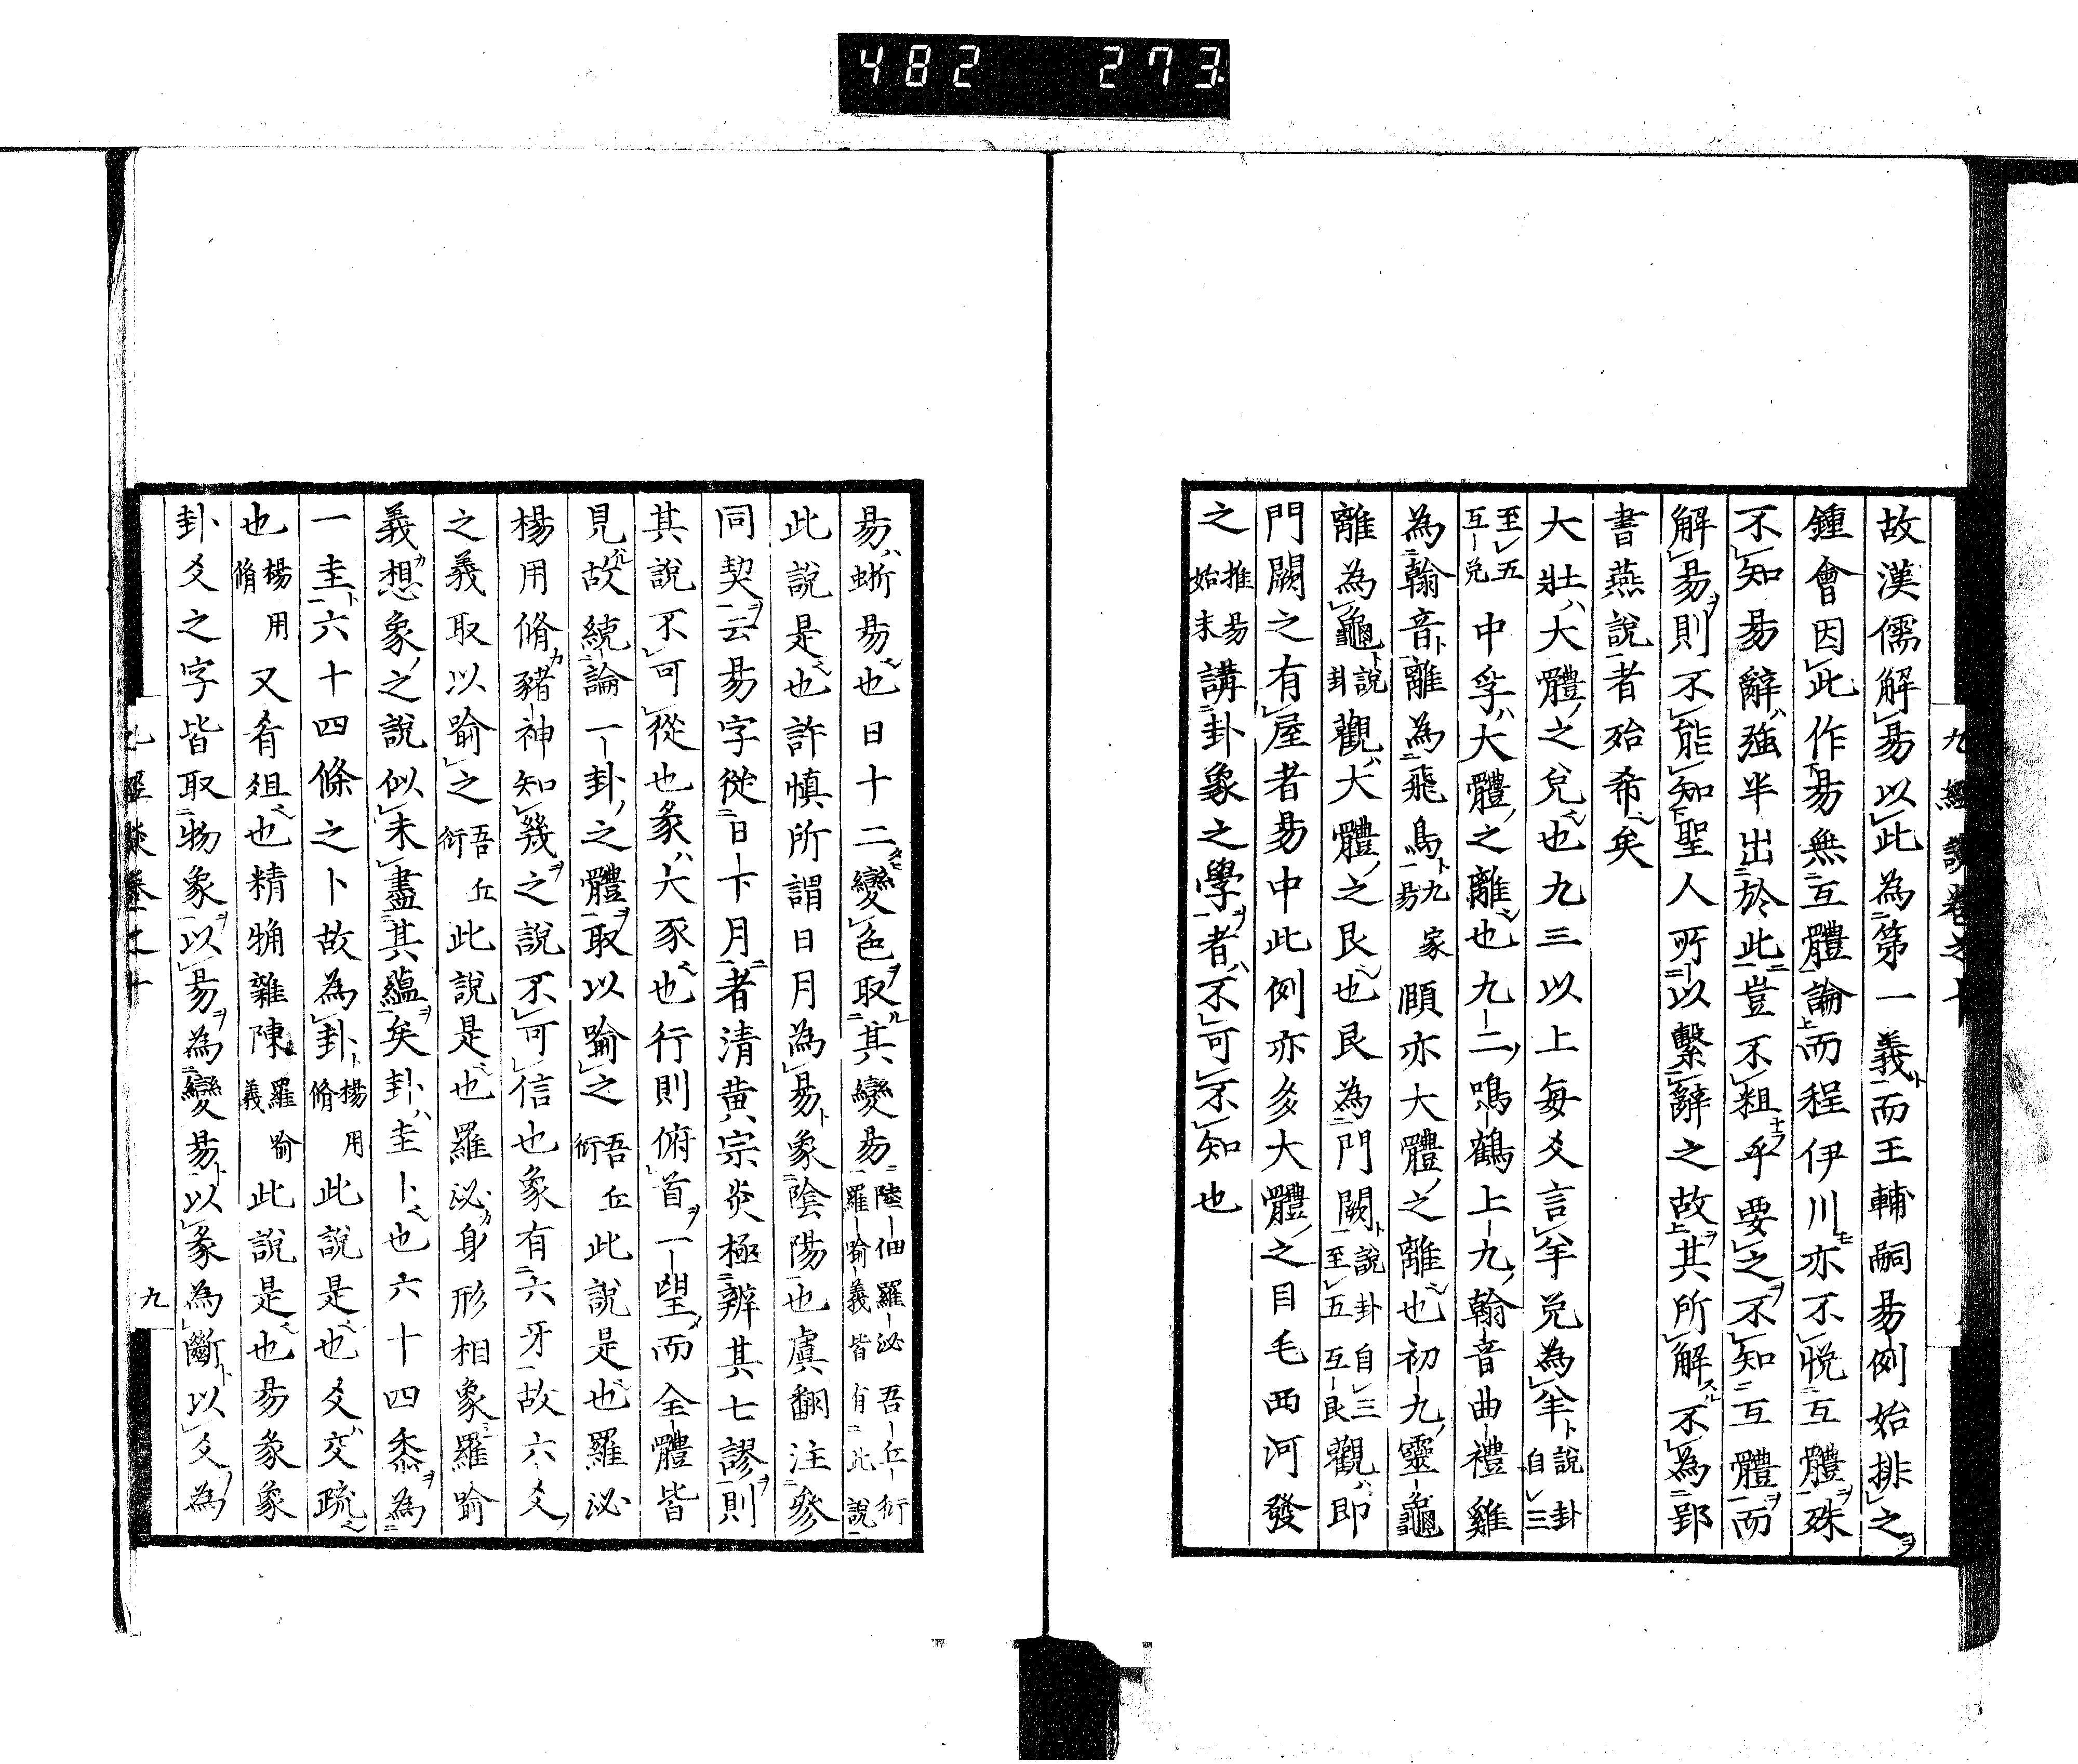 482 273
九經談卷之十
故漢儒解易以此為第一義而王輔嗣易例始排之
鍾會因此作易無互體論而程伊川亦不悅互體殊
不知易辭強半出於此豈不粗乎要之不知互體而
解易則不能知聖人所以繫辭之故其所解不為郢
書燕說者殆希矣
大壯大體之兌也九三以上每爻言羊兌為羊說卦自三
至五互兌中孚大體之離也九二鳴鶴上九翰音曲禮雞
為翰音離為飛鳥九家易頤亦大體之離也初九靈龜
離為龜說卦觀大體之艮也艮為門闕說卦自三至五互艮觀即
門闕之有屋者易中此例亦多大體之目毛西河發
之推易始末講卦象之學者不可不知也
易蜥易也日十二變色取其變易陸佃羅泌吾丘衍羅喻義皆有此說
此說是也許慎所謂日月為易象陰陽也虞翻注參
同契云易字從日下月者清黃宗炎極辨其七謬則
其說不可從也彖大豕也行則俯首一望而全體皆
見故統論一卦之體取以喻之吾丘衍此說是也羅泌
楊用脩豬神知幾之說不可信也象有六牙故六爻
之義取以喻之吾丘衍此說是也羅泌身形相象羅喻
義想象之說似未盡其蘊矣卦圭卜也六十四黍為
一圭六十四條之卜故為卦楊用脩此說是也爻交疏
也楊用脩又肴俎也精觕雜陳羅喻義此說是也易彖象
卦爻之字皆取物象以易為變易以彖為斷以爻為
九經談卷之十
九